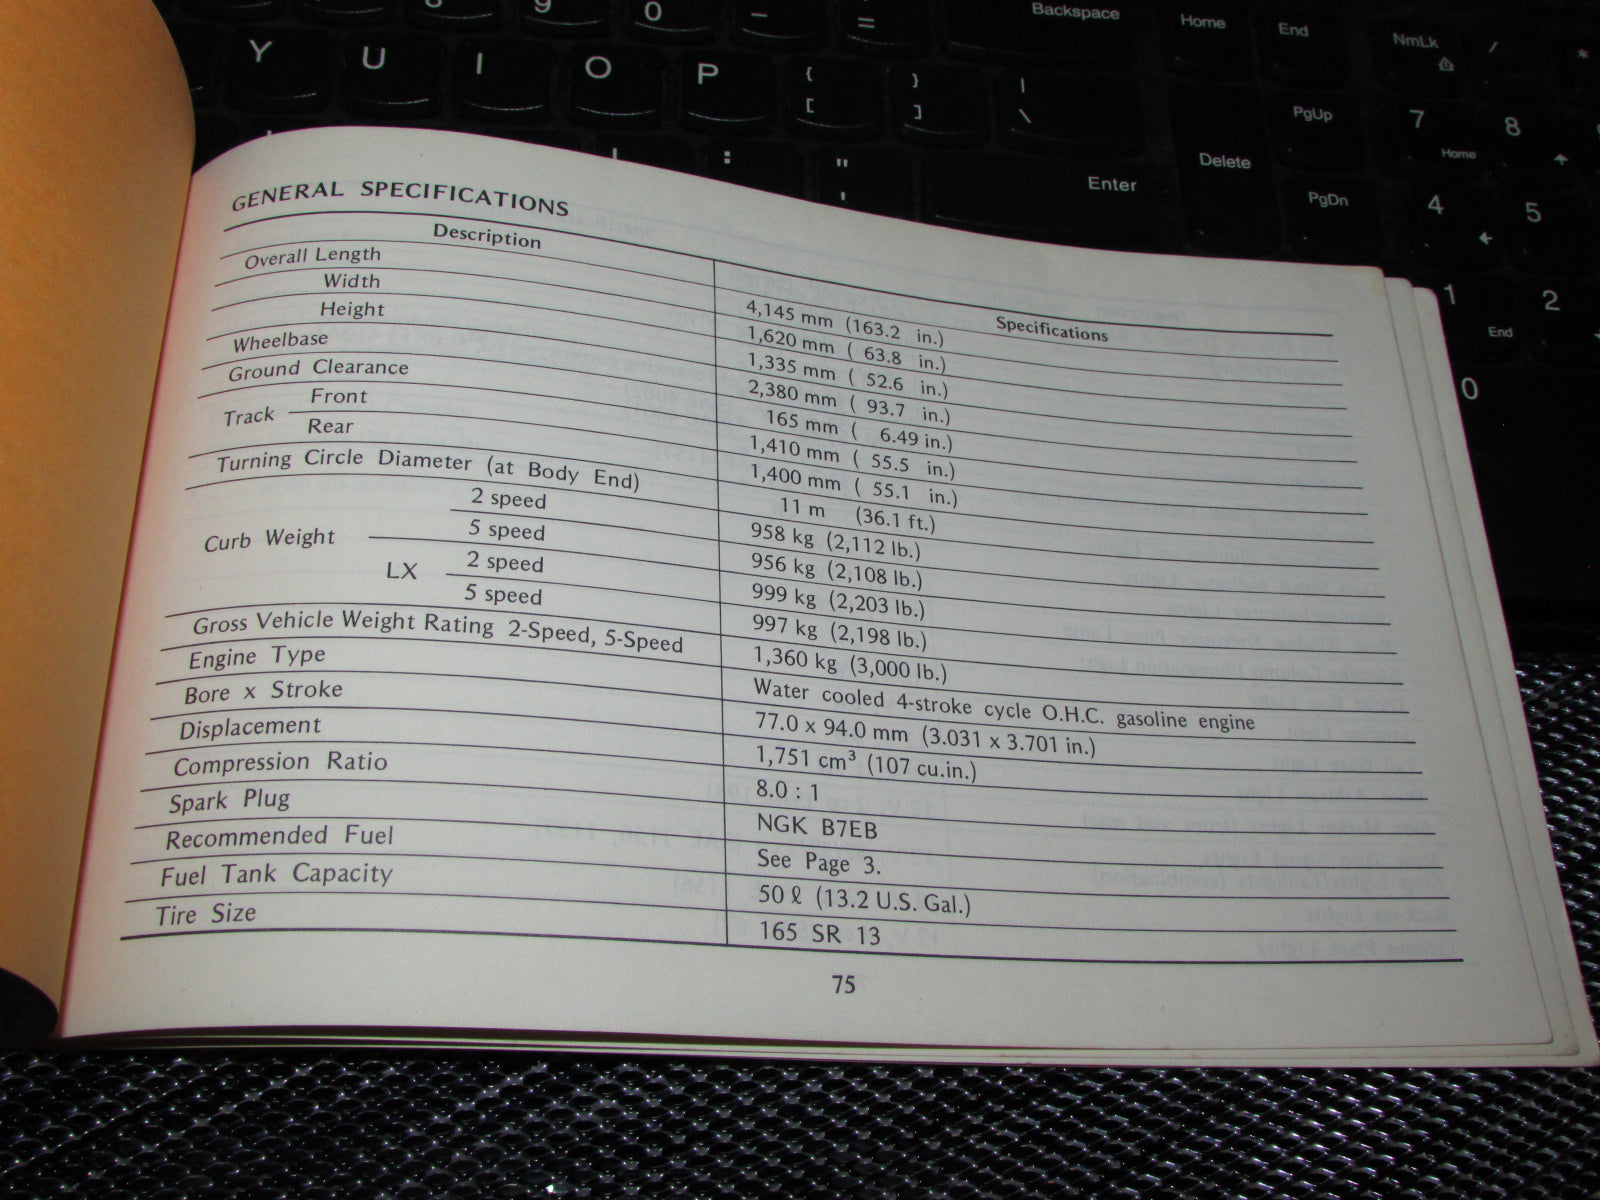 8 9 0 _ = Backspace Home End NmLk / *
Y U I O P { [ } ] | \ PgUp 7 Home 8
: " ' Enter Delete PgDn 4 5
1 End 2
0
GENERAL SPECIFICATIONS
Description Specifications
Overall Length 4,145 mm (163.2 in.)
Width 1,620 mm ( 63.8 in.)
Height 1,335 mm ( 52.6 in.)
Wheelbase 2,380 mm ( 93.7 in.)
Ground Clearance 165 mm ( 6.49 in.)
Track Front 1,410 mm ( 55.5 in.)
Rear 1,400 mm ( 55.1 in.)
Turning Circle Diameter (at Body End) 11 m (36.1 ft.)
Curb Weight 2 speed 958 kg (2,112 lb.)
5 speed 956 kg (2,108 lb.)
LX 2 speed 999 kg (2,203 lb.)
5 speed 997 kg (2,198 lb.)
Gross Vehicle Weight Rating 2-Speed, 5-Speed 1,360 kg (3,000 lb.)
Engine Type Water cooled 4-stroke cycle O.H.C. gasoline engine
Bore x Stroke 77.0 x 94.0 mm (3.031 x 3.701 in.)
Displacement 1,751 cm³ (107 cu.in.)
Compression Ratio 8.0 : 1
Spark Plug NGK B7EB
Recommended Fuel See Page 3.
Fuel Tank Capacity 50 ℓ (13.2 U.S. Gal.)
Tire Size 165 SR 13
75